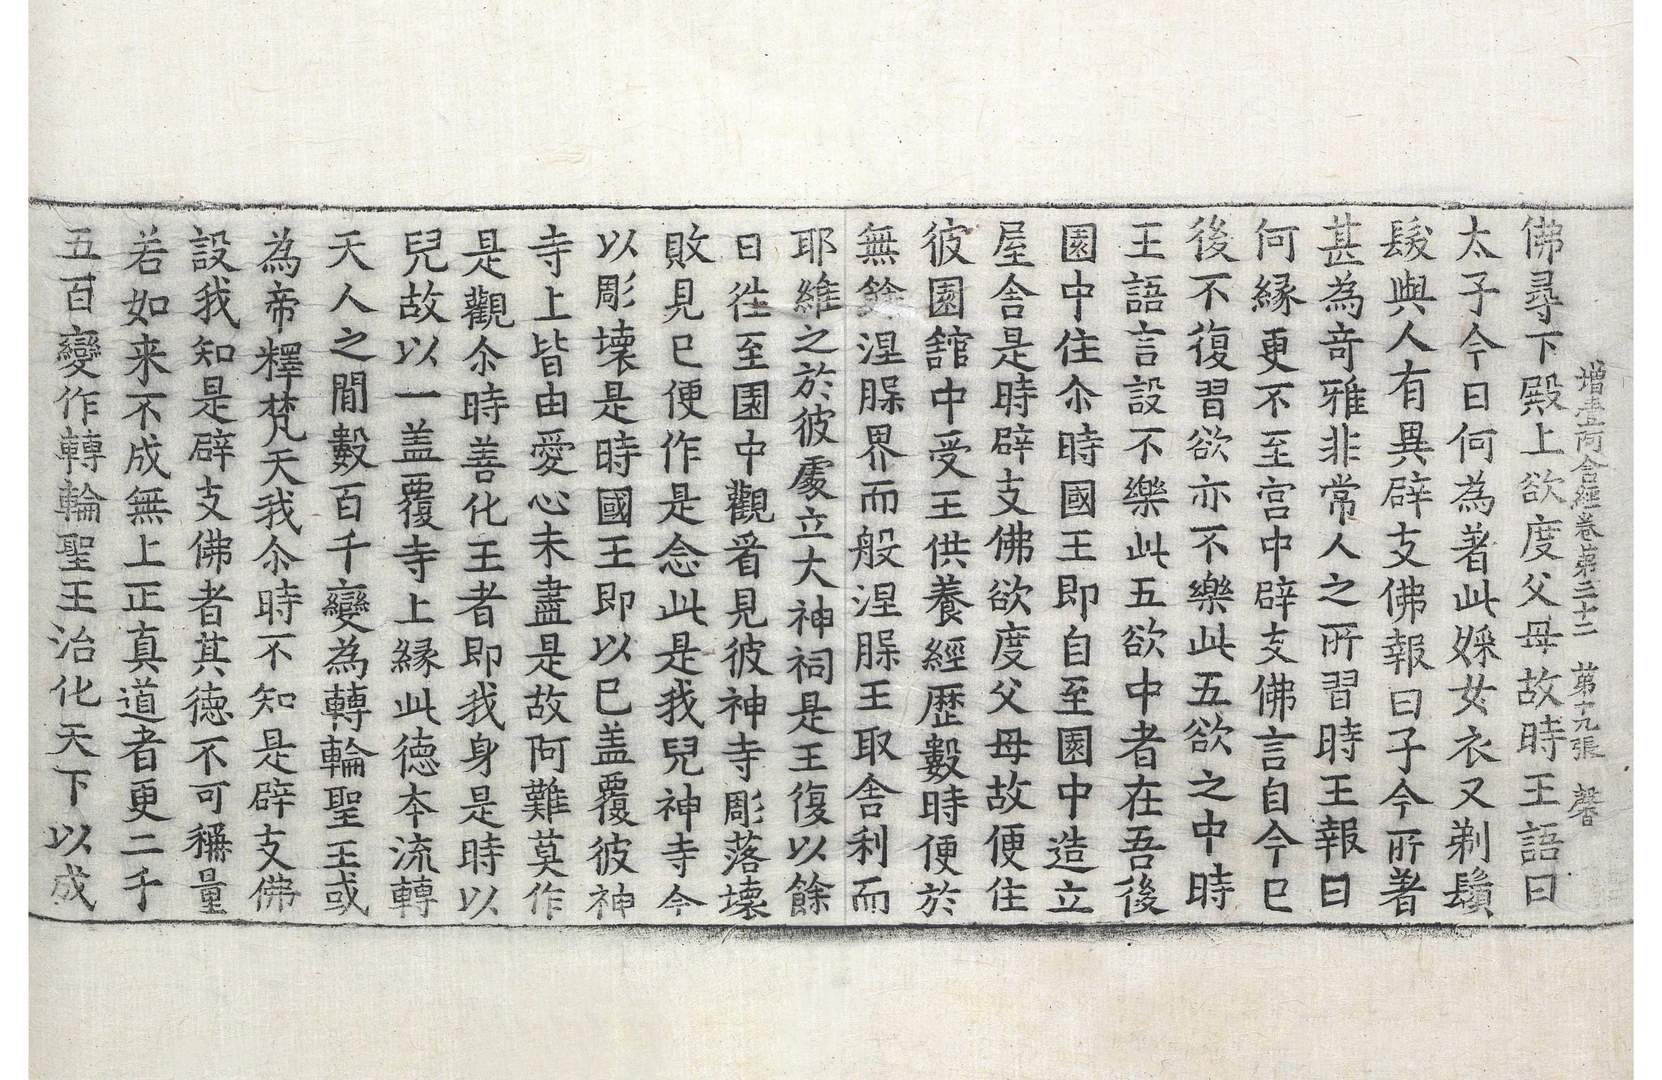 增壹阿含經卷第三十二 第十九張 馨
佛尋下殿上欲度父母故時王語曰
太子今日何為著此婇女衣又剃鬚
髮與人有異辟支佛報曰子今所著
甚為奇雅非常人之所習時王報曰
何緣更不至宮中辟支佛言自今已
後不復習欲亦不樂此五欲之中時
王語言設不樂此五欲中者在吾後
園中住尒時國王即自至園中造立
屋舍是時辟支佛欲度父母故便住
彼園舘中受王供養經歷數時便於
無餘涅槃界而般涅槃王取舍利而
耶維之於彼處立大神祠是王復以餘
日往至園中觀看見彼神寺彫落壞
敗見已便作是念此是我兒神寺今
以彫壞是時國王即以己盖覆彼神
寺上皆由愛心未盡是故阿難莫作
是觀尒時善化王者即我身是時以
兒故以一盖覆寺上緣此德夲流轉
天人之閒數百千變為轉輪聖王或
為帝釋梵天我尒時不知是辟支佛
設我知是辟支佛者其德不可稱量
若如来不成無上正真道者更二千
五百變作轉輪聖王治化天下以成